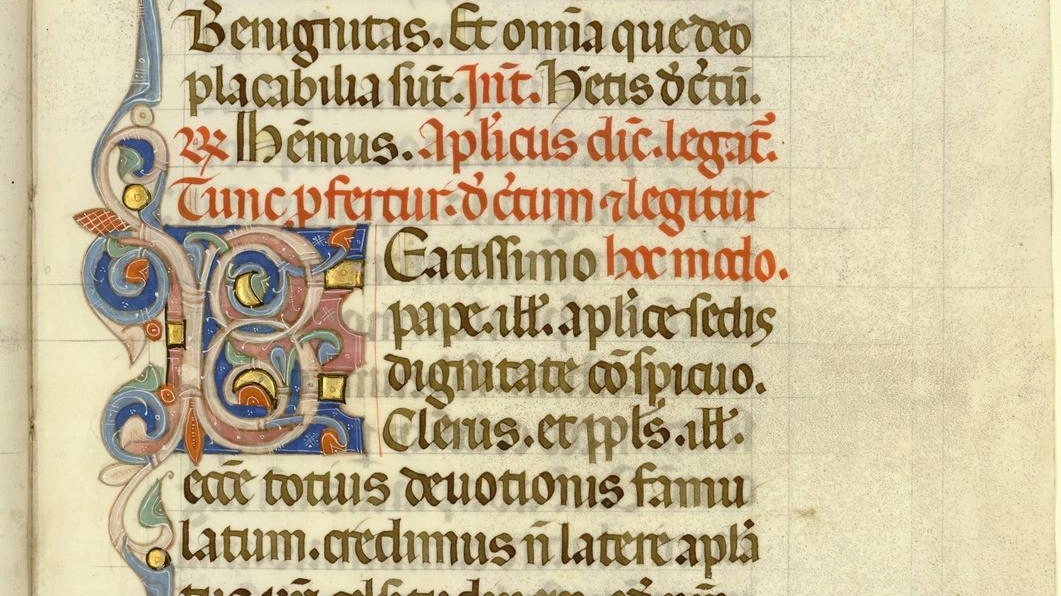 Benignitas. Et om̄ia que deo
placabilia sūt. Jn̄t. Hetis dc̄tū.
℞ Hēmus. Aplicus dic̄. legat̄.
Tunc pfertur. dc̄tum ⁊ legitur
BEatissimo hoc modo.
pape. ill̄. aplice sedis
dignitate cōspicuo.
Clerus. et ppls̄. ill̄.
ecc̄e totius deuotionis famu
latum. credimus n̄ latere aplā